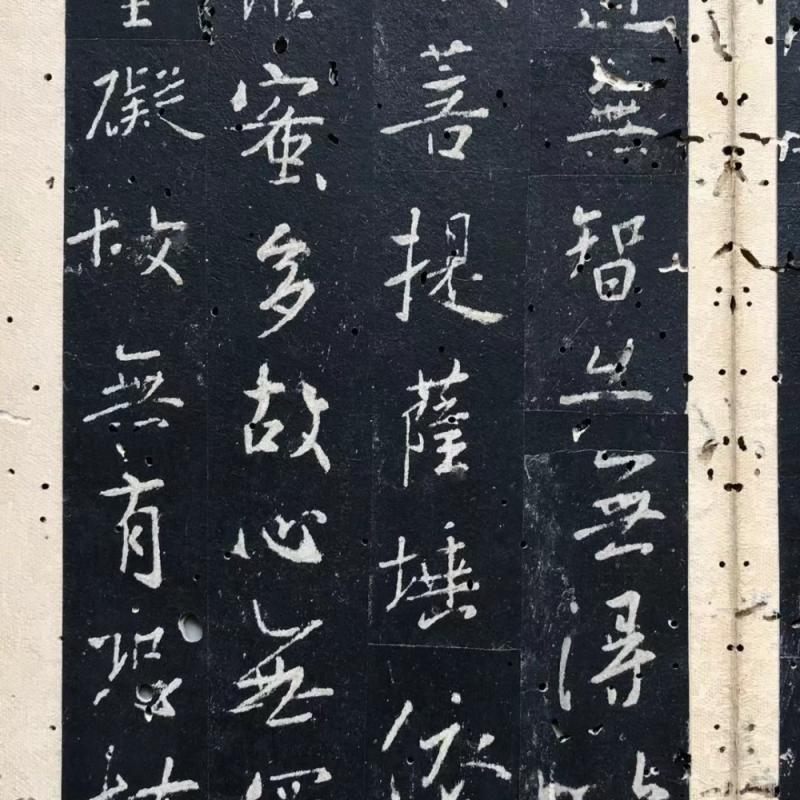 無智亦無得
菩提薩埵依
蜜多故心無
礙故無有恐